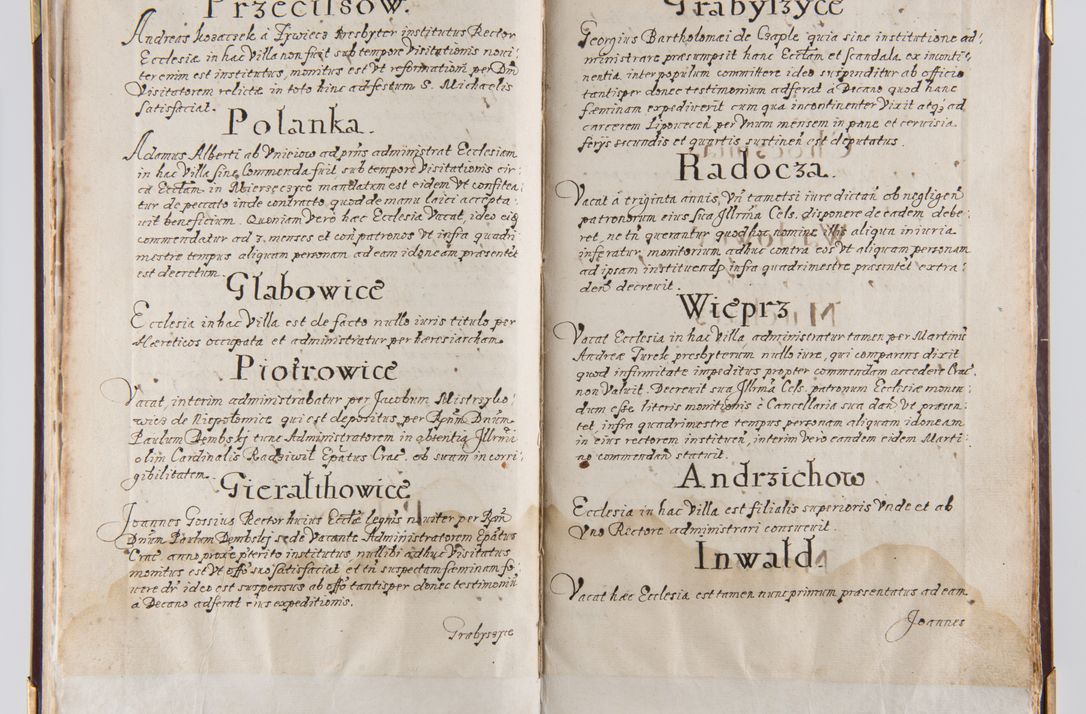 Przeciſsow.
Andreas Kozaczek à Zywiecz Presbyter institutus Rector
Ecclesia in hac Villa non fuit sub tempore Visitationis noui:
ter enim est institutus, monitus est Vt reformationi per Dm
Visitatorem relictæ in toto hinc ad festum S. Michaelis
satisfaciat.
Polanka.
Adamus Alberti ab Vniciow ad prns administrat Ecclesiam
in hac Villa sine Commenda fuit sub tempore Visitationis cir:
ca Ecclam in Mierzęczyce mandatum est eidem Vt confitea:
tur de peccato inde contracto, quod de manu laici accepta:
uit beneficium. Quoniam Vero hæc Ecclesia Vacat, ideo eiq
commendatur ad 3. menses et con patronos Vt infra quadri
mestre tempus aliquam personam ad eam idoneam præsentet
est decretum.
Glabowice
Ecclesia in hac Villa est de facto nullo iuris titulo per
Hæreticos occupata et administratur per hæresiarcham.
Piotrowice
Vacat, interim administrabatur per Jacobum Mistrzyko:
wicz de Niepołomice qui est depositus, per Rdnm Dnum
Paulum Dembskj tunc Administratorem in absentia Jllrmi
olim Cardinalis Radziwił Epatus Crac. ob suam incorri:
gibilitatem.
Gierałthowice
Joannes Gossius Rector huius Ecclæ legitis nouiter per Rdn
Dnum Paulum Dembskj sede Vacante Administratorem Epatus
Crac anno proxe pterito institutus nullibi adhuc Visitatus
monitus est Vt offo suo satisfaciat et tn suspectam fæminam fo:
uere dr ideo est suspensus ab offo tantisper donec testimoniū
a Decano adferat eius expeditionis.
Grabyszyce
Grabyszyce
Georgius Bartholomæi de Czaple quia sine institutione ad:
ministrare præsumpsit hanc Ecclam et scandala ex inconti:
nentia inter populum committere ideo suspenditur ab officio
tantisper donec testimonium adferat a Decano quod hanc
fæminam expediuerit cum qua incontinenter Vixit atq3 ad
carcerem Lipoueceń per Vnum mensem in pane et ceruisia
ferijs secundis et quartis sustineń est deputatus.
Radocza.
Vacat à triginta annis, Vń tametsi iure dictań ob negligeń
patronorum eius sua Jllrma Cels. disponere de eadem debe:
ret, ne tń querantur quod hoc nomine illis aliqua iniuria
inferatur, monitorium adhuc contra eos Vt aliquam personam
ad ipsam instituendā infra quadrimestre præsentet extra:
deń decreuit.
Wieprz
Vacat Ecclesia in hac Villa administratur tamen per Martinū
Andreæ Turek presbyterum nullo iure, qui comparens dixit
quod infirmitate impeditus propter commendam accedere Crac
non Valuit. Decreuit sua Jllrma Cels. patronum Ecclesiæ monen:
dum esse literis monitionis è Cancellaria sua dań Vt præsen:
tet, infra quadrimestre tempus personam aliquam idoneam
in eius rectorem institueń, interim Vero eandem eidem Marti:
no commendań statuit.
Andrzichow
Ecclesia in hac Villa est filialis superioris Vnde et ab
Vno Rectore administrari consueuit.
Inwałd.
Vacat hæc Ecclesia est tamen nunc primum præsentatus ad eam
Joannes